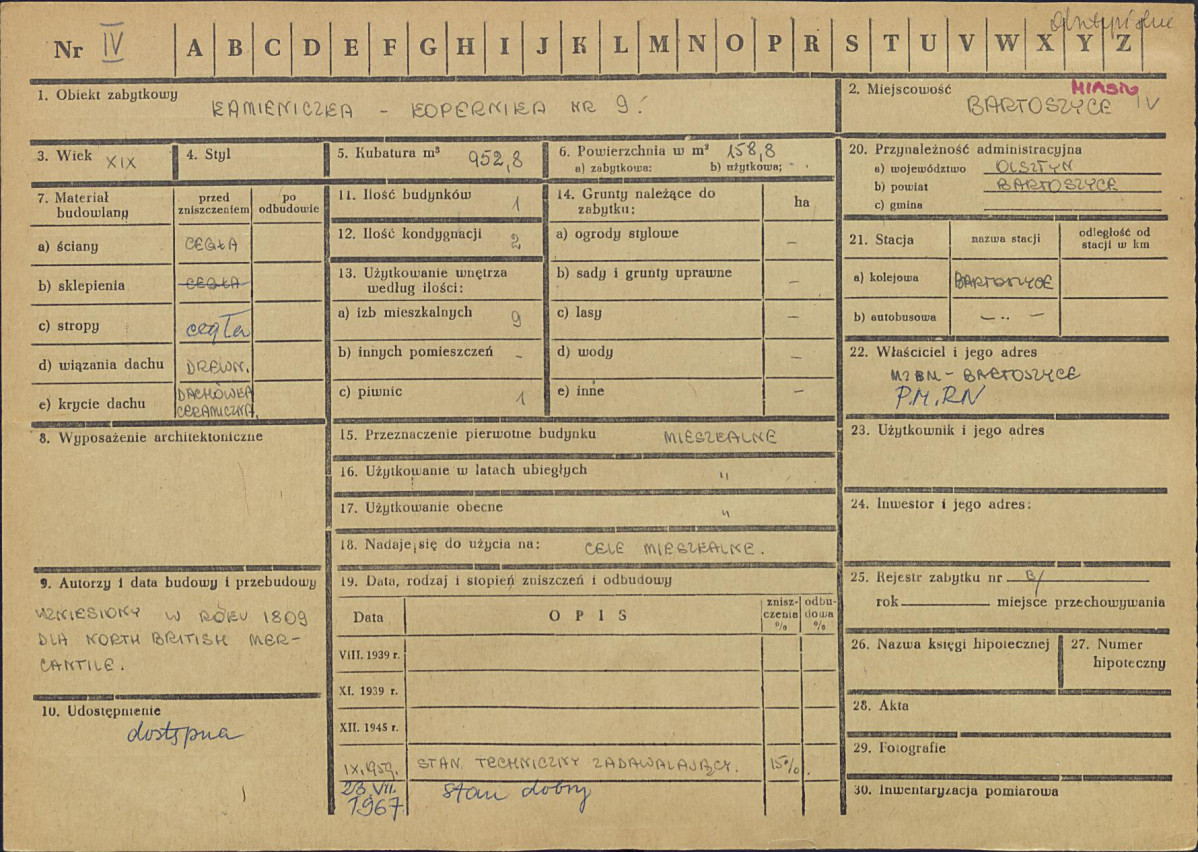 Nr IV A B C D E F G H I J K L M N O P R S T U V W X Y Z
1. Obiekt zabytkowy
KAMIENICZKA - KOPERNIKA NR 9.
2. Miejscowość
MIASTO
BARTOSZYCE IV
3. Wiek XIX
4. Styl
5. Kubatura m³ 952,8
6. Powierzchnia w m² 158,8
a) zabytkowa: b) użytkowa; - .
20. Przynależność administracyjna
a) województwo OLSZTYN
b) powiat BARTOSZYCE
c) gmina
7. Materiał budowlany
przed zniszczeniem
po odbudowie
a) ściany CEGŁA
b) sklepienia CEGŁA
c) stropy cegła
d) wiązania dachu DREWN.
e) krycie dachu DACHÓWKA CERAMICZNA.
11. Ilość budynków 1
12. Ilość kondygnacji 2
13. Użytkowanie wnętrza
według ilości:
a) izb mieszkalnych 9
b) innych pomieszczeń -
c) piwnic 1
14. Grunty należące do
zabytku:
ha
a) ogrody stylowe —
b) sady i grunty uprawne —
c) lasy —
d) wody —
e) inne —
21. Stacja
nazwa stacji
odległość od
stacji w km
a) kolejowa BARTOSZYCE
b) autobusowa — .. —
22. Właściciel i jego adres
MZBM - BARTOSZYCE
P.M.RN
8. Wyposażenie architektoniczne
15. Przeznaczenie pierwotne budynku MIESZKALNE
16. Użytkowanie w latach ubiegłych "
17. Użytkowanie obecne "
18. Nadaje się do użycia na: CELE MIESZKALNE.
23. Użytkownik i jego adres
24. Inwestor i jego adres:
9. Autorzy i data budowy i przebudowy
WZNIESIONY W ROKU 1809
DLA NORTH BRITISH MER-
CANTILE.
19. Data, rodzaj i stopień zniszczeń i odbudowy
Data
OPIS
znisz-
czenia
%
odbu-
dowa
%
VIII. 1939 r.
XI. 1939 r.
XII. 1945 r.
IX.1959. STAN TECHNICZNY ZADAWALAJĄCY. 15%.
23.VII.
1967 stan dobry
25. Rejestr zabytku nr B/
rok miejsce przechowywania
26. Nazwa księgi hipotecznej
27. Numer
hipoteczny
10. Udostępnienie
dostępna
28. Akta
29. Fotografie
30. Inwentaryzacja pomiarowa